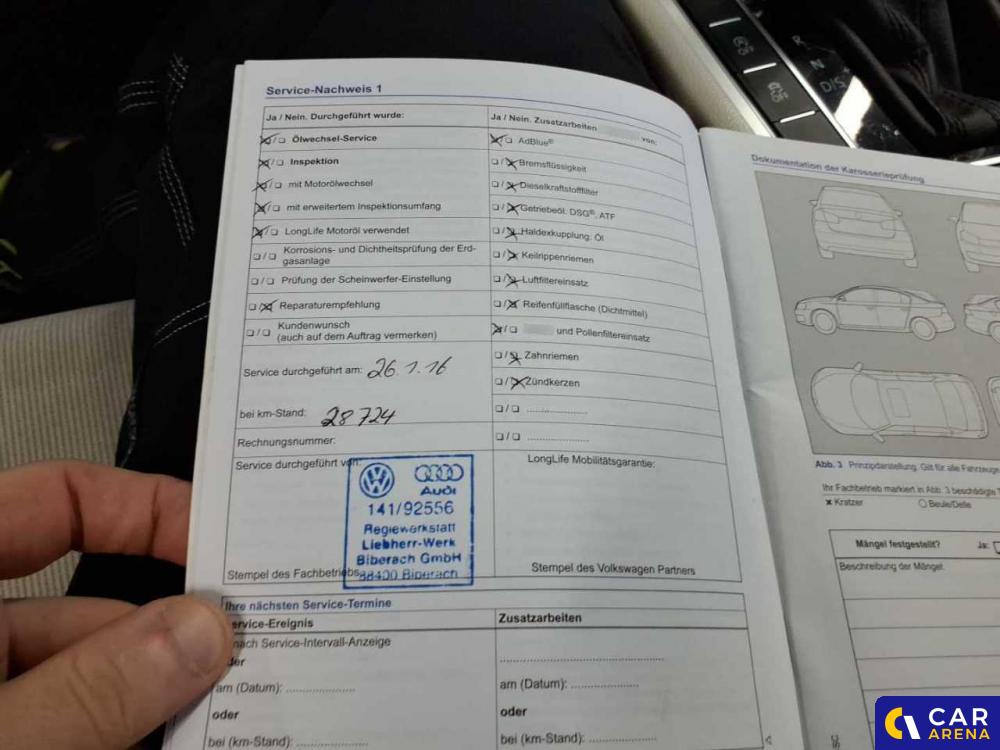 Service-Nachweis 1
Ja / Nein. Durchgeführt wurde:
Ölwechsel-Service
Inspektion
mit Motorölwechsel
mit erweitertem Inspektionsumfang
LongLife Motoröl verwendet
Korrosions- und Dichtheitsprüfung der Erd-
gasanlage
Prüfung der Scheinwerfer-Einstellung
Reparaturempfehlung
Kundenwunsch
(auch auf dem Auftrag vermerken)
Service durchgeführt am: 26.1.16
bei km-Stand: 28724
Rechnungsnummer:
Service durchgeführt von:
Audi
141/92556
Regiewerkstatt
Liebherr-Werk
Biberach GmbH
88400 Biberach
Stempel des Fachbetriebs
Ja / Nein. Zusatzarbeiten von:
AdBlue®
Bremsflüssigkeit
Dieselkraftstofffilter
Getriebeöl: DSG®, ATF
Haldexkupplung: Öl
Keilrippenriemen
Luftfiltereinsatz
Reifenfüllflasche (Dichtmittel)
und Pollenfiltereinsatz
Zahnriemen
Zündkerzen
LongLife Mobilitätsgarantie:
Stempel des Volkswagen Partners
Ihre nächsten Service-Termine
Service-Ereignis
nach Service-Intervall-Anzeige
oder
am (Datum): ....................
oder
bei (km-Stand): ....................
Zusatzarbeiten
am (Datum): ....................
oder
bei (km-Stand): ....................
Dokumentation der Karosserieprüfung
Abb. 3 Prinzipdarstellung. Gilt für alle Fahrzeuge
Ihr Fachbetrieb markiert in Abb. 3 beschädigte
Kratzer
Beule/Delle
Mängel festgestellt? Ja:
Beschreibung der Mängel:
R
N
D/S
OFF
CAR
ARENA